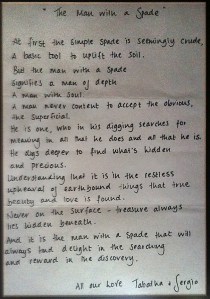 "The Man with a Spade"
At first the simple spade is seemingly crude,
a basic tool to uplift the soil.
But the man with a spade
signifies a man of depth
A man with soul.
A man never content to accept the obvious,
the superficial.
He is one, who in his digging searches for
meaning in all that he does and all that he is.
He digs deeper to find what's hidden
and precious.
Understanding that it is in the restless
upheaval of earthbound things that true
beauty and love is found.
Never on the surface - treasure always
lies hidden beneath.
And it is the man with a spade that will
always find delight in the searching
and reward in the discovery.
All our Love Tabatha & Sergio